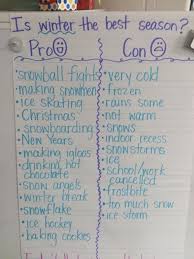 Is winter the best season?
Pro
• snowball fights
• making snowmen
• ice skating
• Christmas
• snowboarding
• New Years
• making igloos
• drinking hot
chocolate
• snow angels
• winter break
• snowflake
• ice hockey
• baking cookies
Con
• very cold
• frozen
• rains some
• not warm
• snows
• indoor recess
• snowstorms
• ice
• school/work
cancelled
• frostbite
• too much snow
• ice storm